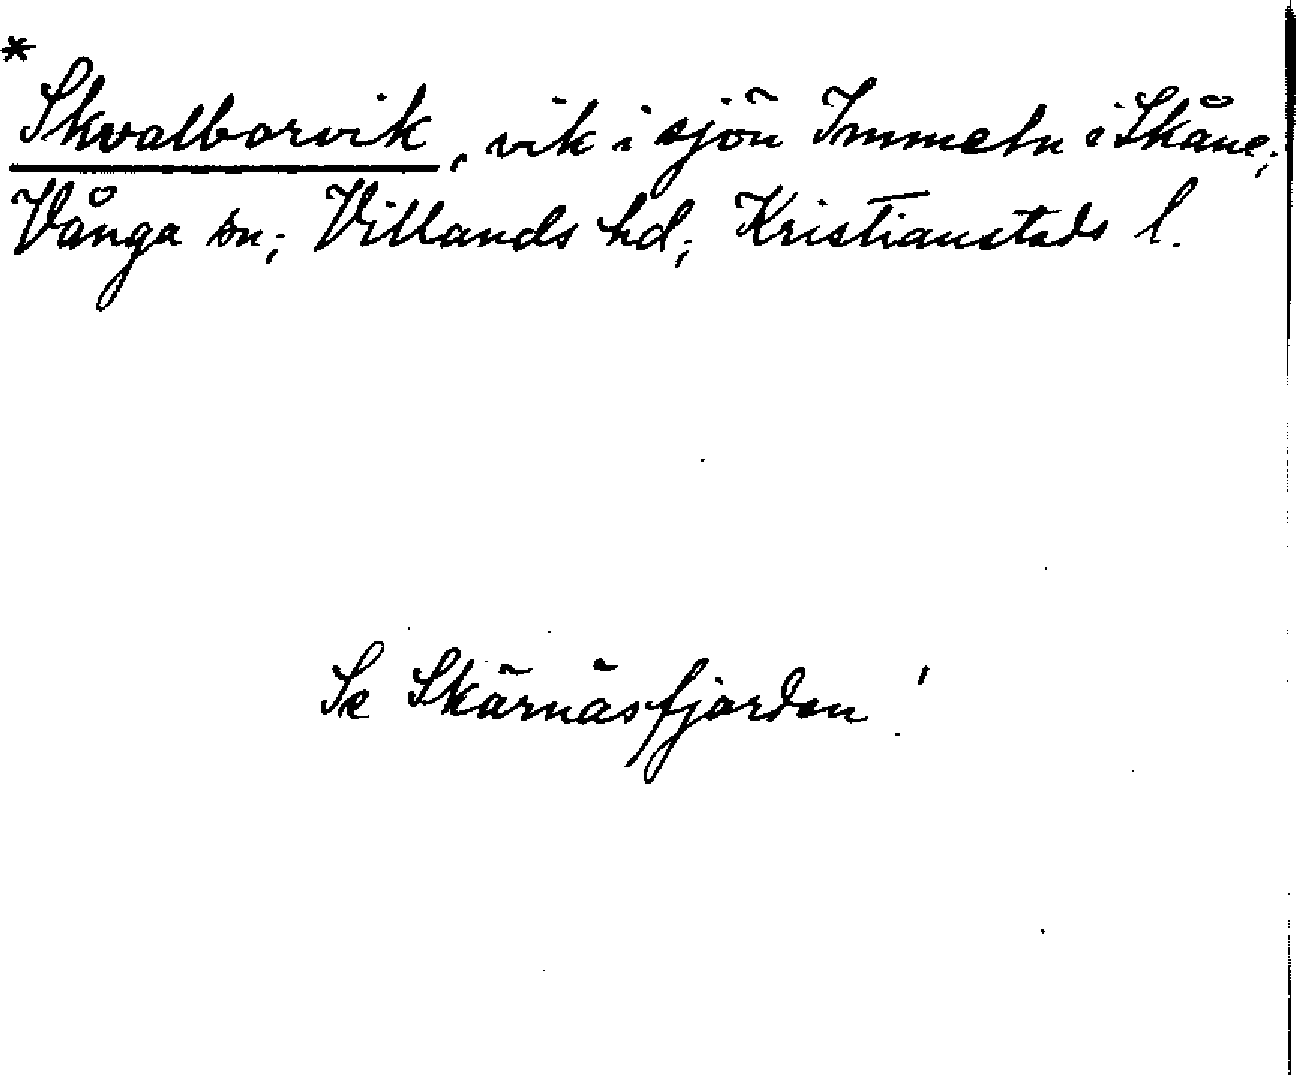 *
Skvalborvik, vik i sjön Immeln i Skåne;
Vånga sn; Villands hd; Kristianstads l.
Se Skärnäsfjorden!